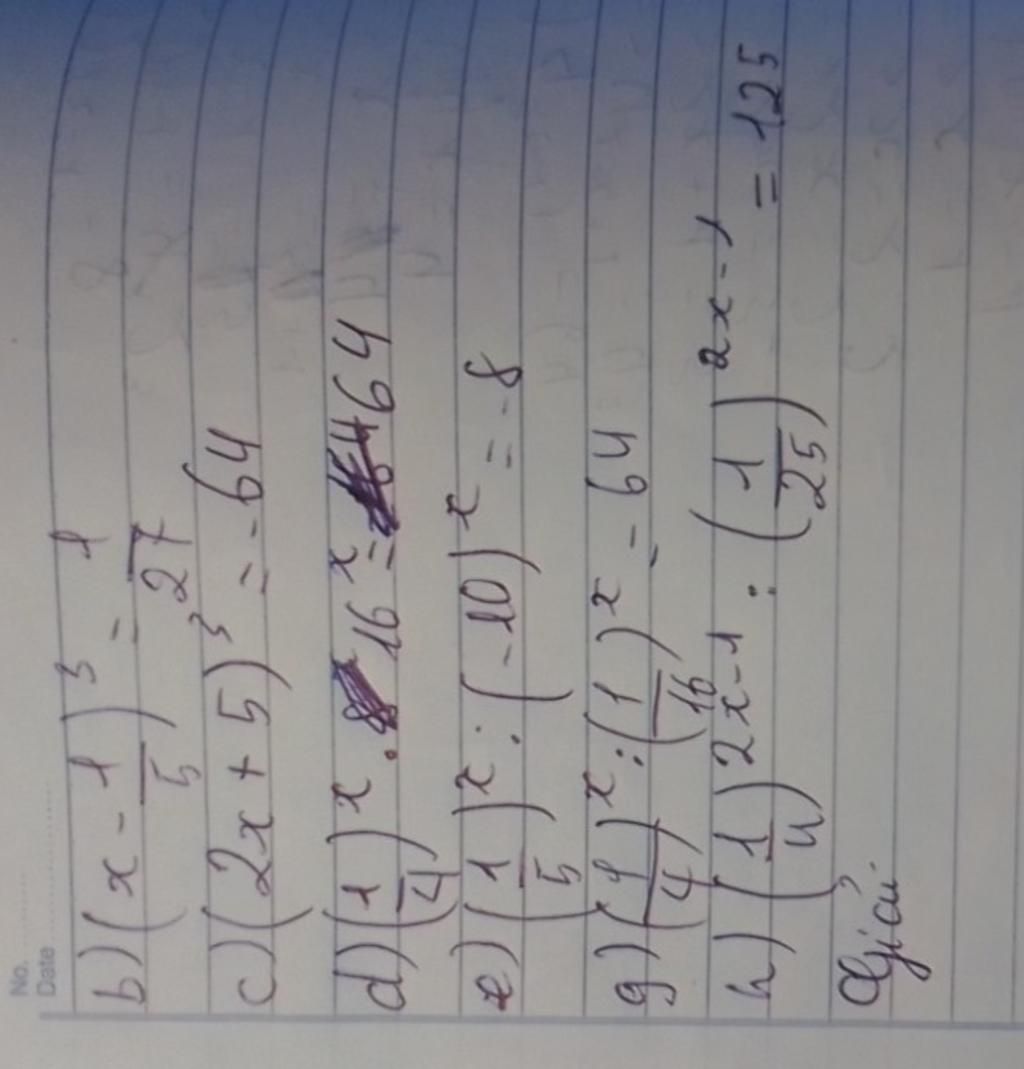 No.
Date
b) (x - 1/5)³ = 1/27
c) (2x + 5)³ = -64
d) (1/4)ˣ . 16ˣ = 64
e) (1/5)ˣ : (-10)ˣ = -8
g) (1/4)ˣ : (1/16)ˣ = 64
h) (1/4)²ˣ⁻¹ : (1/25)²ˣ⁻¹ = 125
Giải